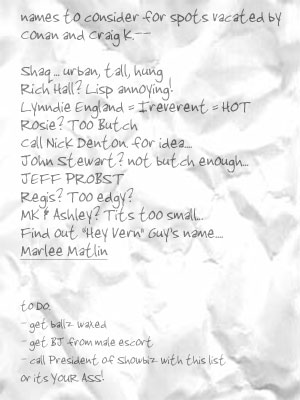 names to consider for spots vacated by
Conan and Craig K.--
Shaq... urban, tall, hung
Rich Hall? Lisp annoying!
Lynndie England = Ireverent = HOT
Rosie? Too Butch
Call Nick Denton for idea...
John Stewart? not butch enough...
JEFF PROBST
Regis? Too edgy?
MK & Ashley? Tits too small...
Find out "Hey Vern" Guy's name....
Marlee Matlin
to Do:
- get ballz waxed
- get BJ from male escort
- call President of Showbiz with this list
or its YOUR ASS!